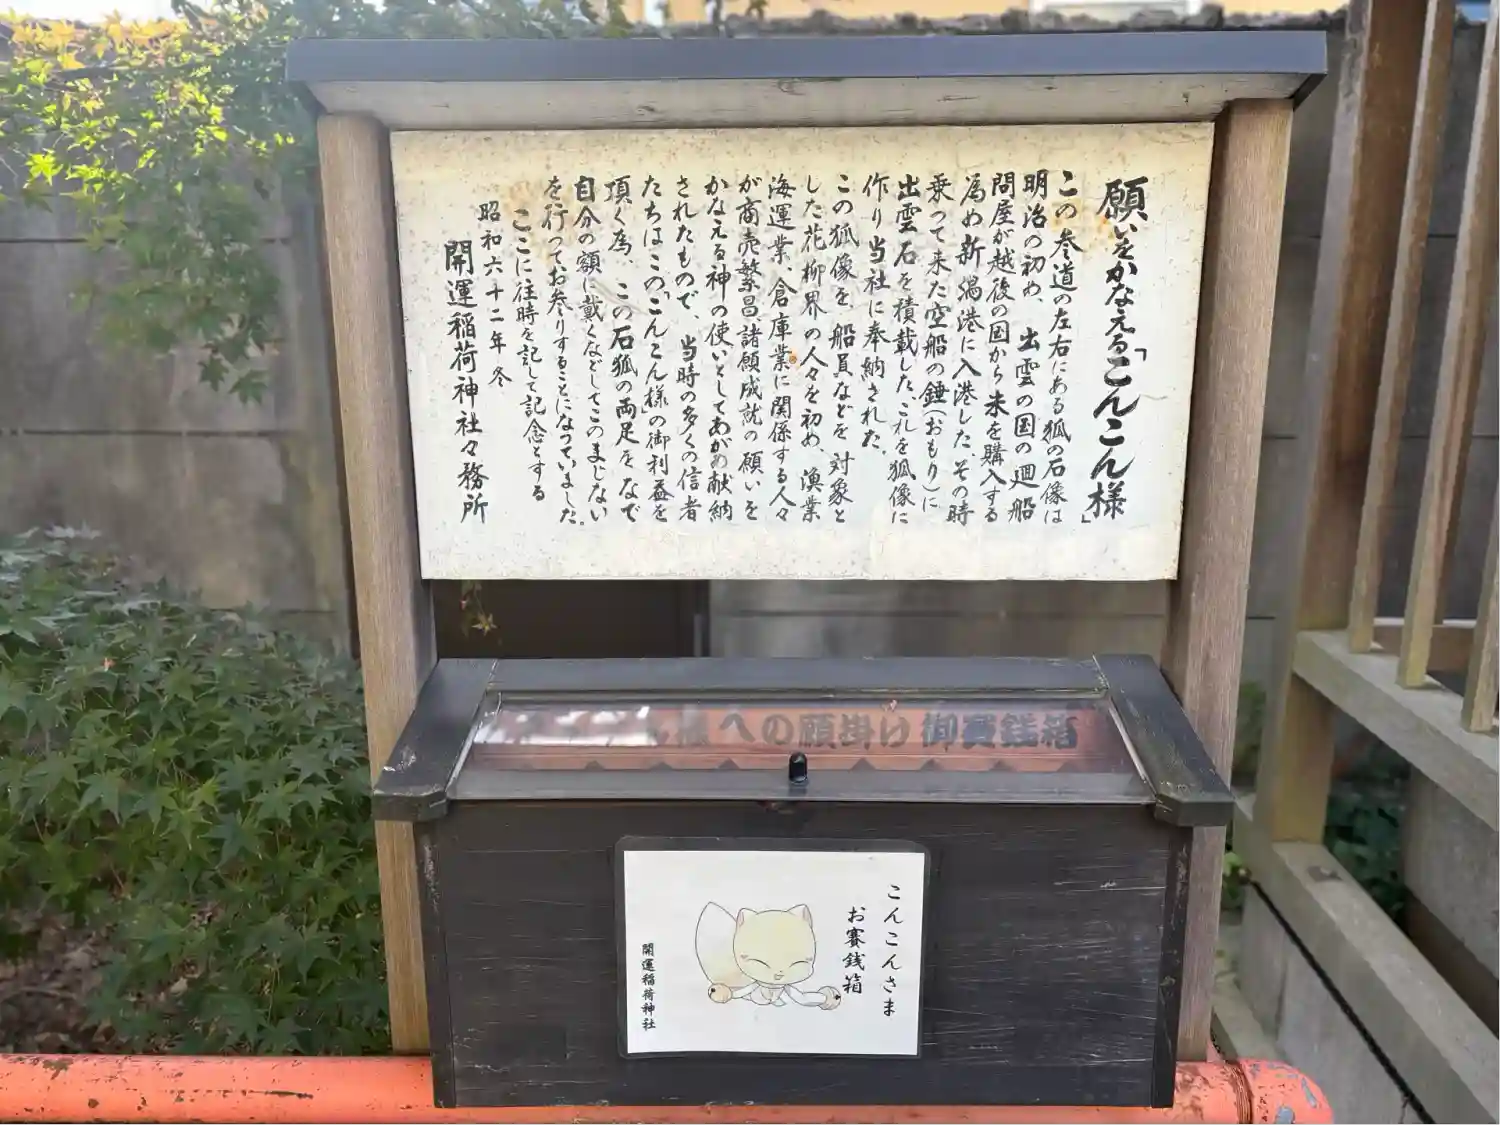 願いをかなえる「こんこん様」
この参道の左右にある狐の石像は
明治の初め、出雲の国の廻船
問屋が越後の国から米を購入する
為め新潟港に入港した、その時
乗って来た空船の錘(おもり)に
出雲石を積載した、これを狐像に
作り当社に奉納された。
この狐像を、船員などを対象と
した花柳界の人々を初め、漁業
海運業、倉庫業に関係する人々
が商売繁昌、諸願成就の願いを
かなえる神の使いとしてあがめ献納
されたもので、当時の多くの信者
たちはこの「こんこん様」の御利益を
頂く為、この石狐の両足をなで
自分の額に戴くなどしてこのまじない
を行ってお参りすることになっていました。
ここに往時を記して記念とする
昭和六十二年冬
開運稲荷神社々務所
様への願掛け御賽銭箱
こんこんさま
お賽銭箱
開運稲荷神社